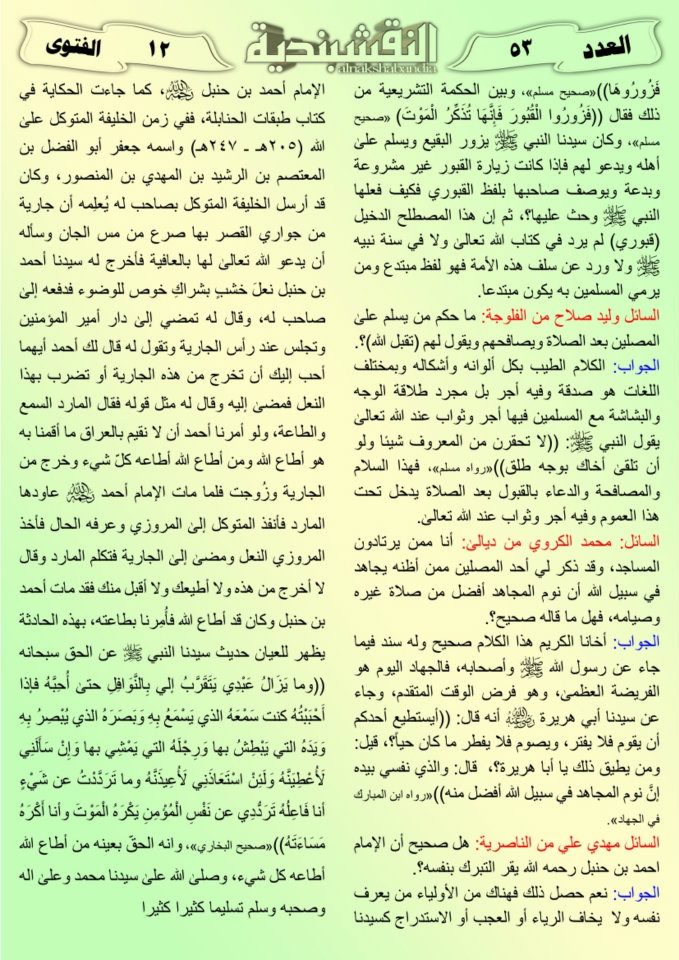 العدد
٥٣
النقشبندية
alnakshabandia
١٢
الفتوى
فَزُورُوهَا))«صحيح مسلم»، وبين الحكمة التشريعية من
ذلك فقال ((فَزُورُوا الْقُبُورَ فَإِنَّهَا تُذَكِّرُ الْمَوْتَ) «صحيح
مسلم»، وكان سيدنا النبي ﷺ يزور البقيع ويسلم على
أهله ويدعو لهم فإذا كانت زيارة القبور غير مشروعة
وبدعة ويوصف صاحبها بلفظ القبوري فكيف فعلها
النبي ﷺ وحث عليها؟، ثم إن هذا المصطلح الدخيل
(قبوري) لم يرد في كتاب الله تعالى ولا في سنة نبيه
ﷺ ولا ورد عن سلف هذه الأمة فهو لفظ مبتدع ومن
يرمي المسلمين به يكون مبتدعا.
السائل وليد صلاح من الفلوجة: ما حكم من يسلم على
المصلين بعد الصلاة ويصافحهم ويقول لهم (تقبل الله)؟.
الجواب: الكلام الطيب بكل ألوانه وأشكاله وبمختلف
اللغات هو صدقة وفيه أجر بل مجرد طلاقة الوجه
والبشاشة مع المسلمين فيها أجر وثواب عند الله تعالى
يقول النبي ﷺ: ((لا تحقرن من المعروف شيئا ولو
أن تلقى أخاك بوجه طلق))«رواه مسلم»، فهذا السلام
والمصافحة والدعاء بالقبول بعد الصلاة يدخل تحت
هذا العموم وفيه أجر وثواب عند الله تعالى.
السائل: محمد الكروي من ديالى: أنا ممن يرتادون
المساجد، وقد ذكر لي أحد المصلين ممن أظنه يجاهد
في سبيل الله أن نوم المجاهد أفضل من صلاة غيره
وصيامه، فهل ما قاله صحيح؟.
الجواب: أخانا الكريم هذا الكلام صحيح وله سند فيما
جاء عن رسول الله ﷺ وأصحابه، فالجهاد اليوم هو
الفريضة العظمى، وهو فرض الوقت المتقدم، وجاء
عن سيدنا أبي هريرة رضي الله عنه أنه قال: ((أيستطيع أحدكم
أن يقوم فلا يفتر، ويصوم فلا يفطر ما كان حياً؟، قيل:
ومن يطيق ذلك يا أبا هريرة؟، قال: والذي نفسي بيده
إنَّ نوم المجاهد في سبيل الله أفضل منه))«رواه ابن المبارك
في الجهاد».
السائل مهدي علي من الناصرية: هل صحيح أن الإمام
احمد بن حنبل رحمه الله يقر التبرك بنفسه؟.
الجواب: نعم حصل ذلك فهناك من الأولياء من يعرف
نفسه ولا يخاف الرياء أو العجب أو الاستدراج كسيدنا
الإمام أحمد بن حنبل رحمه الله، كما جاءت الحكاية في
كتاب طبقات الحنابلة، ففي زمن الخليفة المتوكل على
الله (٢٠٥هـ ـ ٢٤٧هـ) واسمه جعفر أبو الفضل بن
المعتصم بن الرشيد بن المهدي بن المنصور، وكان
قد أرسل الخليفة المتوكل بصاحب له يُعلِمه أن جارية
من جواري القصر بها صرع من مس الجان وسأله
أن يدعو الله تعالى لها بالعافية فأخرج له سيدنا أحمد
بن حنبل نعلَ خشبٍ بشراكِ خوص للوضوء فدفعه إلى
صاحب له، وقال له تمضي إلى دار أمير المؤمنين
وتجلس عند رأس الجارية وتقول له قال لك أحمد أيهما
أحب إليك أن تخرج من هذه الجارية أو تضرب بهذا
النعل فمضىٰ إليه وقال له مثل قوله فقال المارد السمع
والطاعة، ولو أمرنا أحمد أن لا نقيم بالعراق ما أقمنا به
هو أطاع الله ومن أطاع الله أطاعه كلّ شيء وخرج من
الجارية وزُوجت فلما مات الإمام أحمد رحمه الله عاودها
المارد فأنفذ المتوكل إلى المروزي وعرفه الحال فأخذ
المروزي النعل ومضىٰ إلى الجارية فتكلم المارد وقال
لا أخرج من هذه ولا أطيعك ولا أقبل منك فقد مات أحمد
بن حنبل وكان قد أطاع الله فأُمِرنا بطاعته، بهذه الحادثة
يظهر للعيان حديث سيدنا النبي ﷺ عن الحق سبحانه
((وما يَزَالُ عَبْدِي يَتَقَرَّبُ إلي بِالنَّوَافِلِ حتى أُحِبَّهُ فإذا
أَحْبَبْتُهُ كنت سَمْعَهُ الذي يَسْمَعُ بِهِ وَبَصَرَهُ الذي يُبْصِرُ بِهِ
وَيَدَهُ التي يَبْطِشُ بها وَرِجْلَهُ التي يَمْشِي بها وَإِنْ سَأَلَنِي
لَأُعْطِيَنَّهُ وَلَئِنْ اسْتَعَاذَنِي لَأُعِيذَنَّهُ وما تَرَدَّدْتُ عن شَيْءٍ
أنا فَاعِلُهُ تَرَدُّدِي عن نَفْسِ الْمُؤْمِنِ يَكْرَهُ الْمَوْتَ وأنا أَكْرَهُ
مَسَاءَتَهُ))«صحيح البخاري»، وانه الحقّ بعينه من أطاع الله
أطاعه كل شيء، وصلى الله على سيدنا محمد وعلى اله
وصحبه وسلم تسليما كثيرا كثيرا